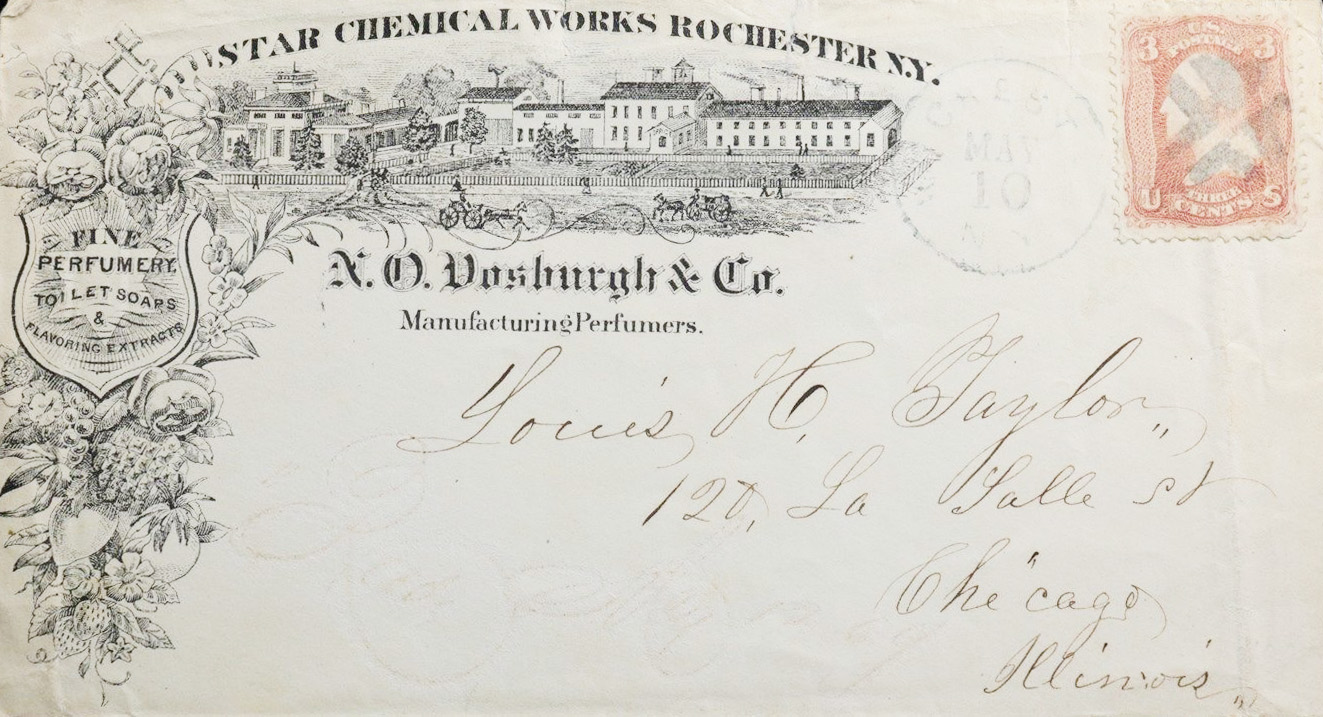 STAR CHEMICAL WORKS ROCHESTER N.Y.
FINE
PERFUMERY,
TOILET SOAPS
&
FLAVORING EXTRACTS
N. O. Vosburgh & Co.
Manufacturing Perfumers.
3 U.S. 3
POSTAGE
U THREE S
CENTS
MAY
10
Louis H. Taylor,,
120, La Salle st
Chicago
Illinois,,